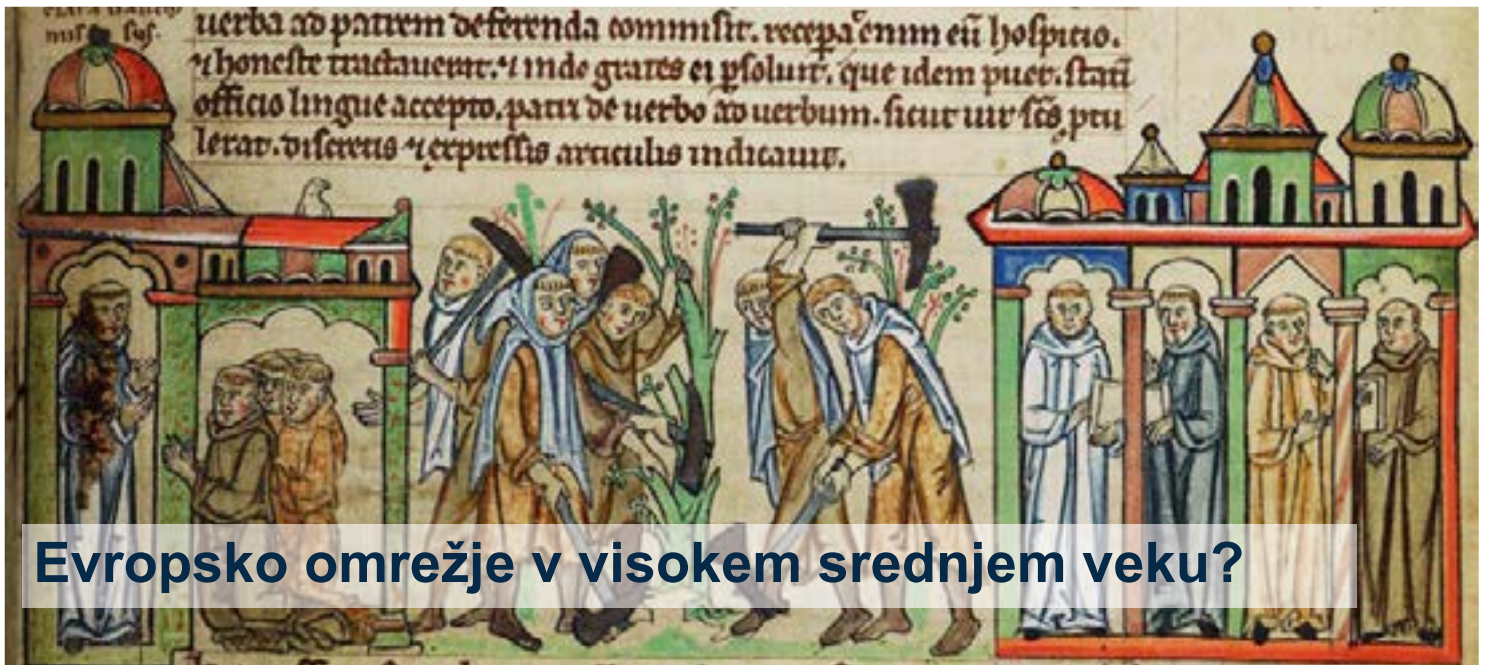 uerba ad patrem deferenda commiſit. enim eū hoſpicio.
⁊ honeſte tractauerat. ⁊ inde grates ei ꝑſoluit. que idem puer. ſtatī
officio lingue accepto. patri de uerbo ad uerbum. ſicut uir ſcs̄ ptu
lerat. diſcretis ⁊ expreſſis articulis indicauit.
Evropsko omrežje v visokem srednjem veku?